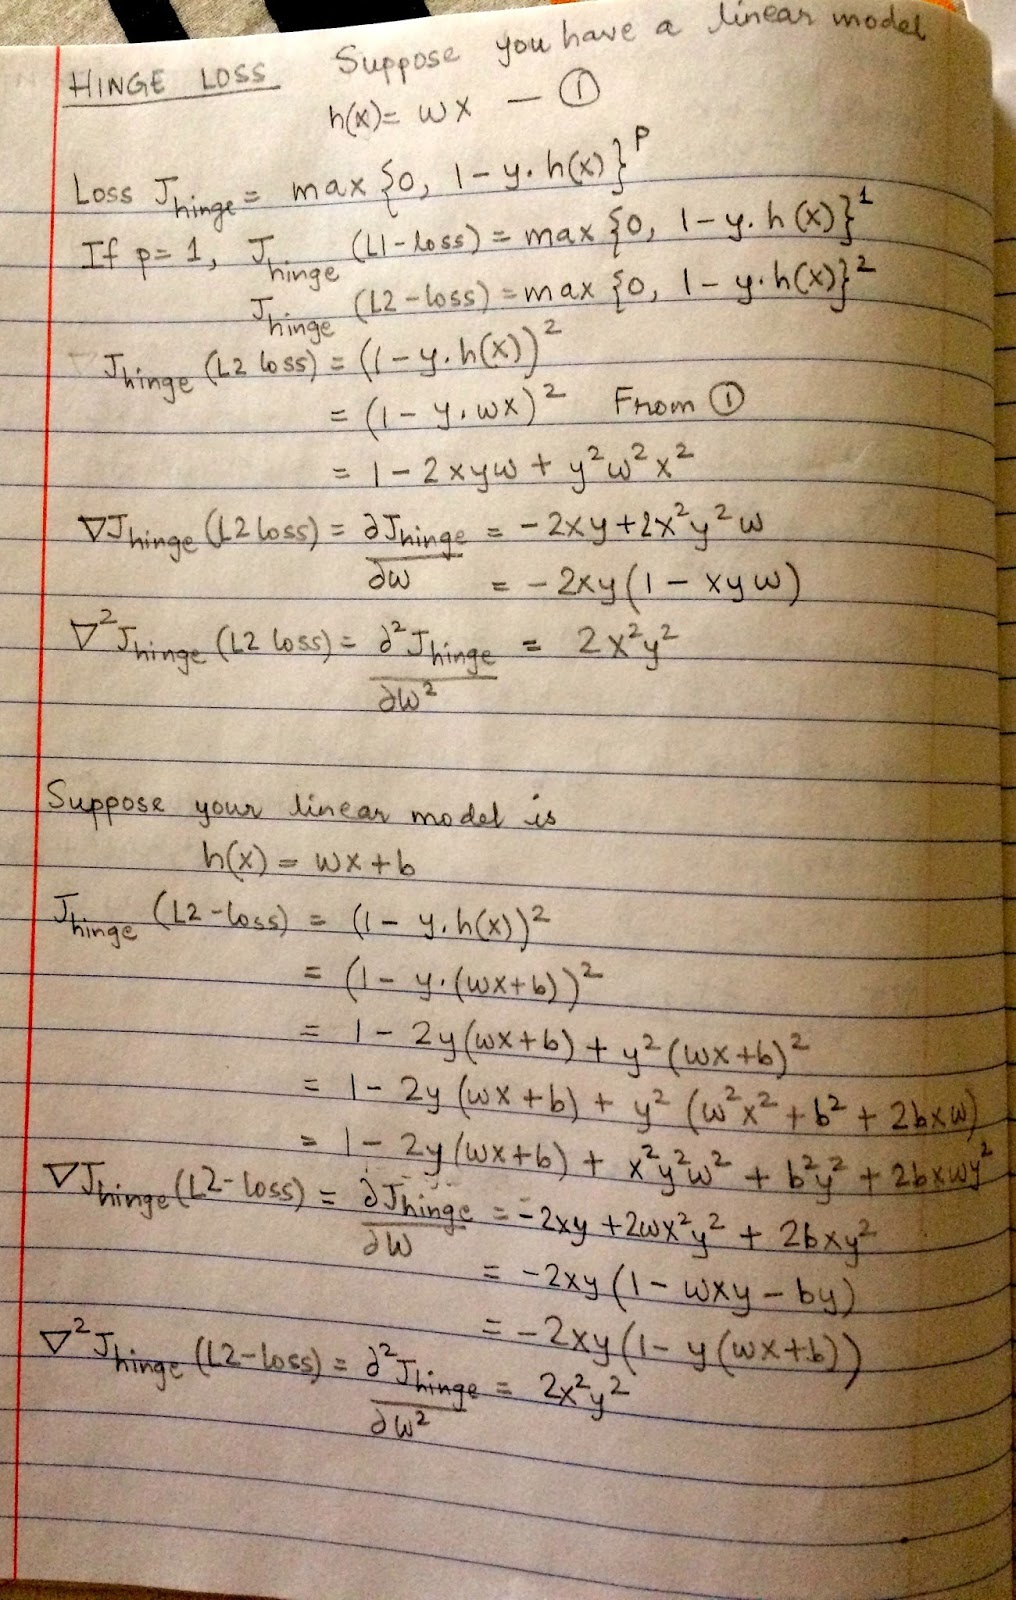 HINGE LOSS Suppose you have a linear model
h(x) = wx — ①
Loss J_hinge = max {0, 1 - y.h(x)}^p
If p = 1, J_hinge (L1-loss) = max {0, 1 - y.h(x)}^1
J_hinge (L2-loss) = max {0, 1 - y.h(x)}^2
J_hinge (L2 loss) = (1 - y.h(x))^2
= (1 - y.wx)^2 From ①
= 1 - 2xyw + y^2w^2x^2
∇J_hinge (L2 loss) = ∂J_hinge/∂w = -2xy + 2x^2y^2w
= -2xy(1 - xyw)
∇^2J_hinge (L2 loss) = ∂^2J_hinge/∂w^2 = 2x^2y^2
Suppose your linear model is
h(x) = wx + b
J_hinge (L2-loss) = (1 - y.h(x))^2
= (1 - y.(wx+b))^2
= 1 - 2y(wx+b) + y^2(wx+b)^2
= 1 - 2y(wx+b) + y^2(w^2x^2 + b^2 + 2bxw)
= 1 - 2y(wx+b) + x^2y^2w^2 + b^2y^2 + 2bxwy^2
∇J_hinge (L2-loss) = ∂J_hinge/∂w = -2xy + 2wx^2y^2 + 2bxy^2
= -2xy(1 - wxy - by)
= -2xy(1 - y(wx+b))
∇^2J_hinge (L2-loss) = ∂^2J_hinge/∂w^2 = 2x^2y^2